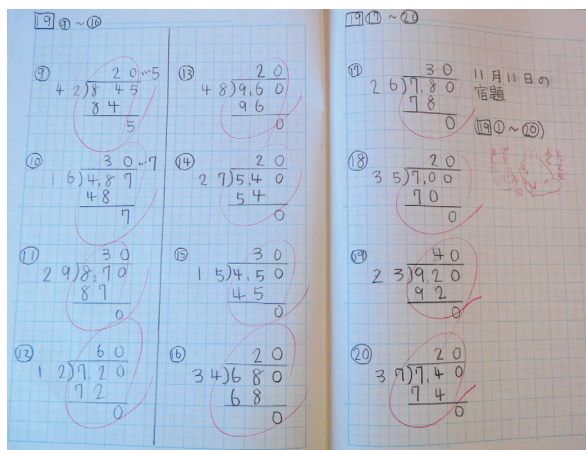 19 ⑨〜⑯
⑨
20…5
42)845
84
5
⑩
30…7
16)4,87
48
7
⑪
30
29)8,70
87
0
⑫
60
12)7,20
72
0
⑬
20
48)9,60
96
0
⑭
20
27)5,40
54
0
⑮
30
15)4,50
45
0
⑯
20
34)680
68
0
19 ⑰〜⑳
⑰
30
26)7,80
78
0
⑱
20
35)7,00
70
0
⑲
40
23)9,20
92
0
⑳
20
37)7,40
74
0
11月11日の
宿題
(19①〜⑳)